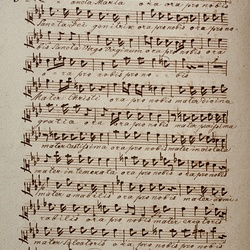 Sancta Maria ora ora pro nobis
Sancta Dei genitrix ora pro nobis ora pro nobis
Sancta Virgo Virginum ora pro nobis ora
ora pro nobis pro nobis
Mater Christi ora pro nobis mater divinae
gratiae ora pro nobis mater purissima
mater castissima ora pro nobis ora pro nobis
mater intemerata ora pro nobis ora pro nobis
mater ora pro nobis mater
rabilis ora pro nobis mater
mater Salvatoris ora pro nobis ora pro nobis